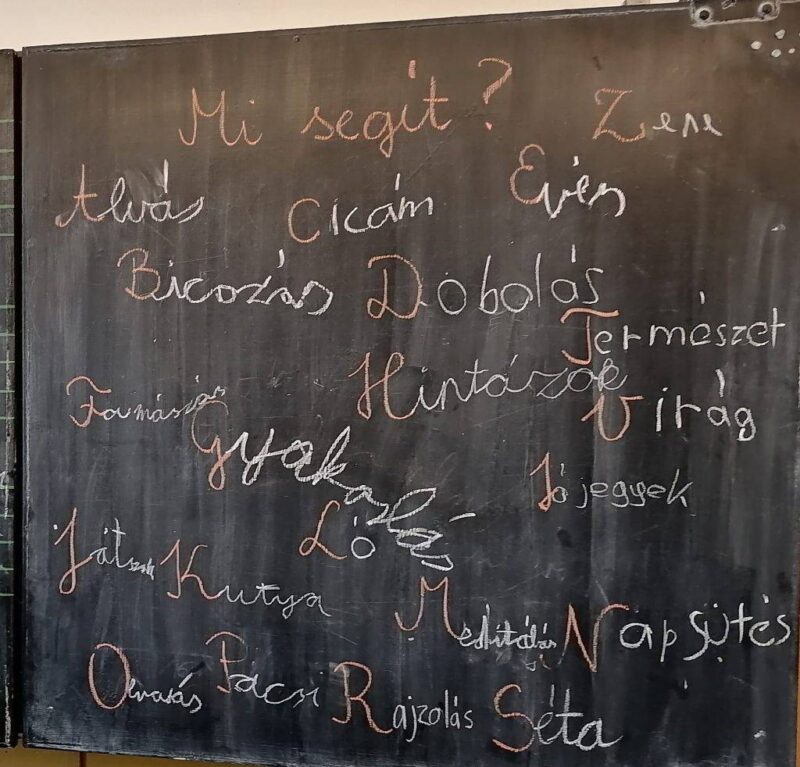 Mi segít?
Zene
Alvás
Cicám
Evés
Bicozás
Dobolás
Természet
Hintázok
Famászás
Virág
Gyakorlás
Jó jegyek
Ló
Játszok
Kutya
Meditálás
Napsütés
Olvasás
Pacsi
Rajzolás
Séta